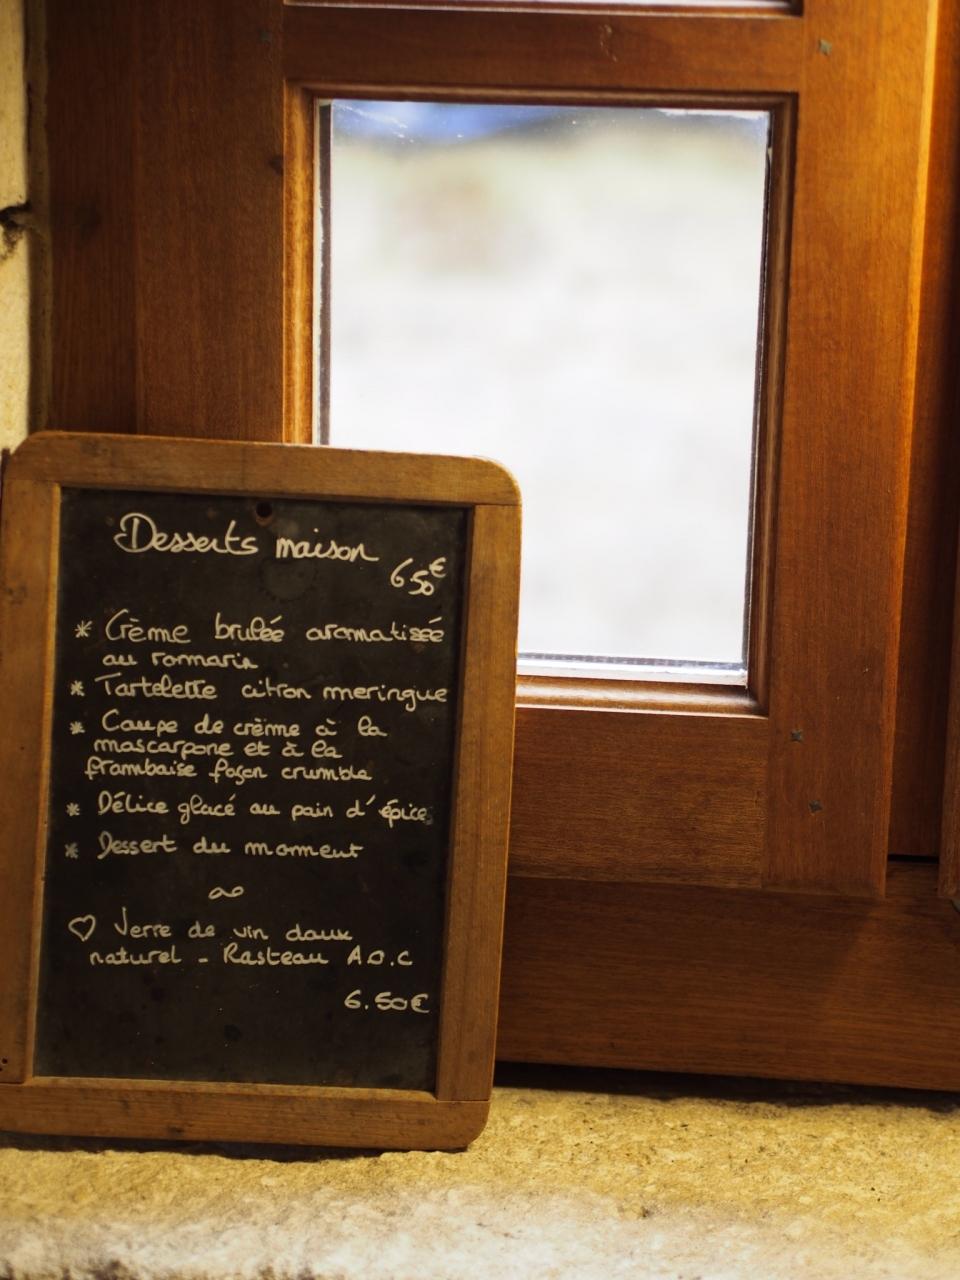 Desserts maison
6 50€
* Crème brulée aromatiséé
au romarin
* Tartelette citron meringue
* Coupe de crème à la
mascarpone et à la
frambaise façon crumble
* Délice glacé au pain d'épices
* Dessert du moment
♡ Verre de vin doux
naturel - Rasteau A.O.C
6.50€